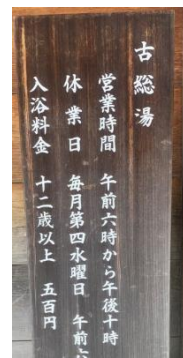 古総湯
営業時間 午前六時から午後十時
休業日 毎月第四水曜日 午前
入浴料金 十二歳以上 五百円